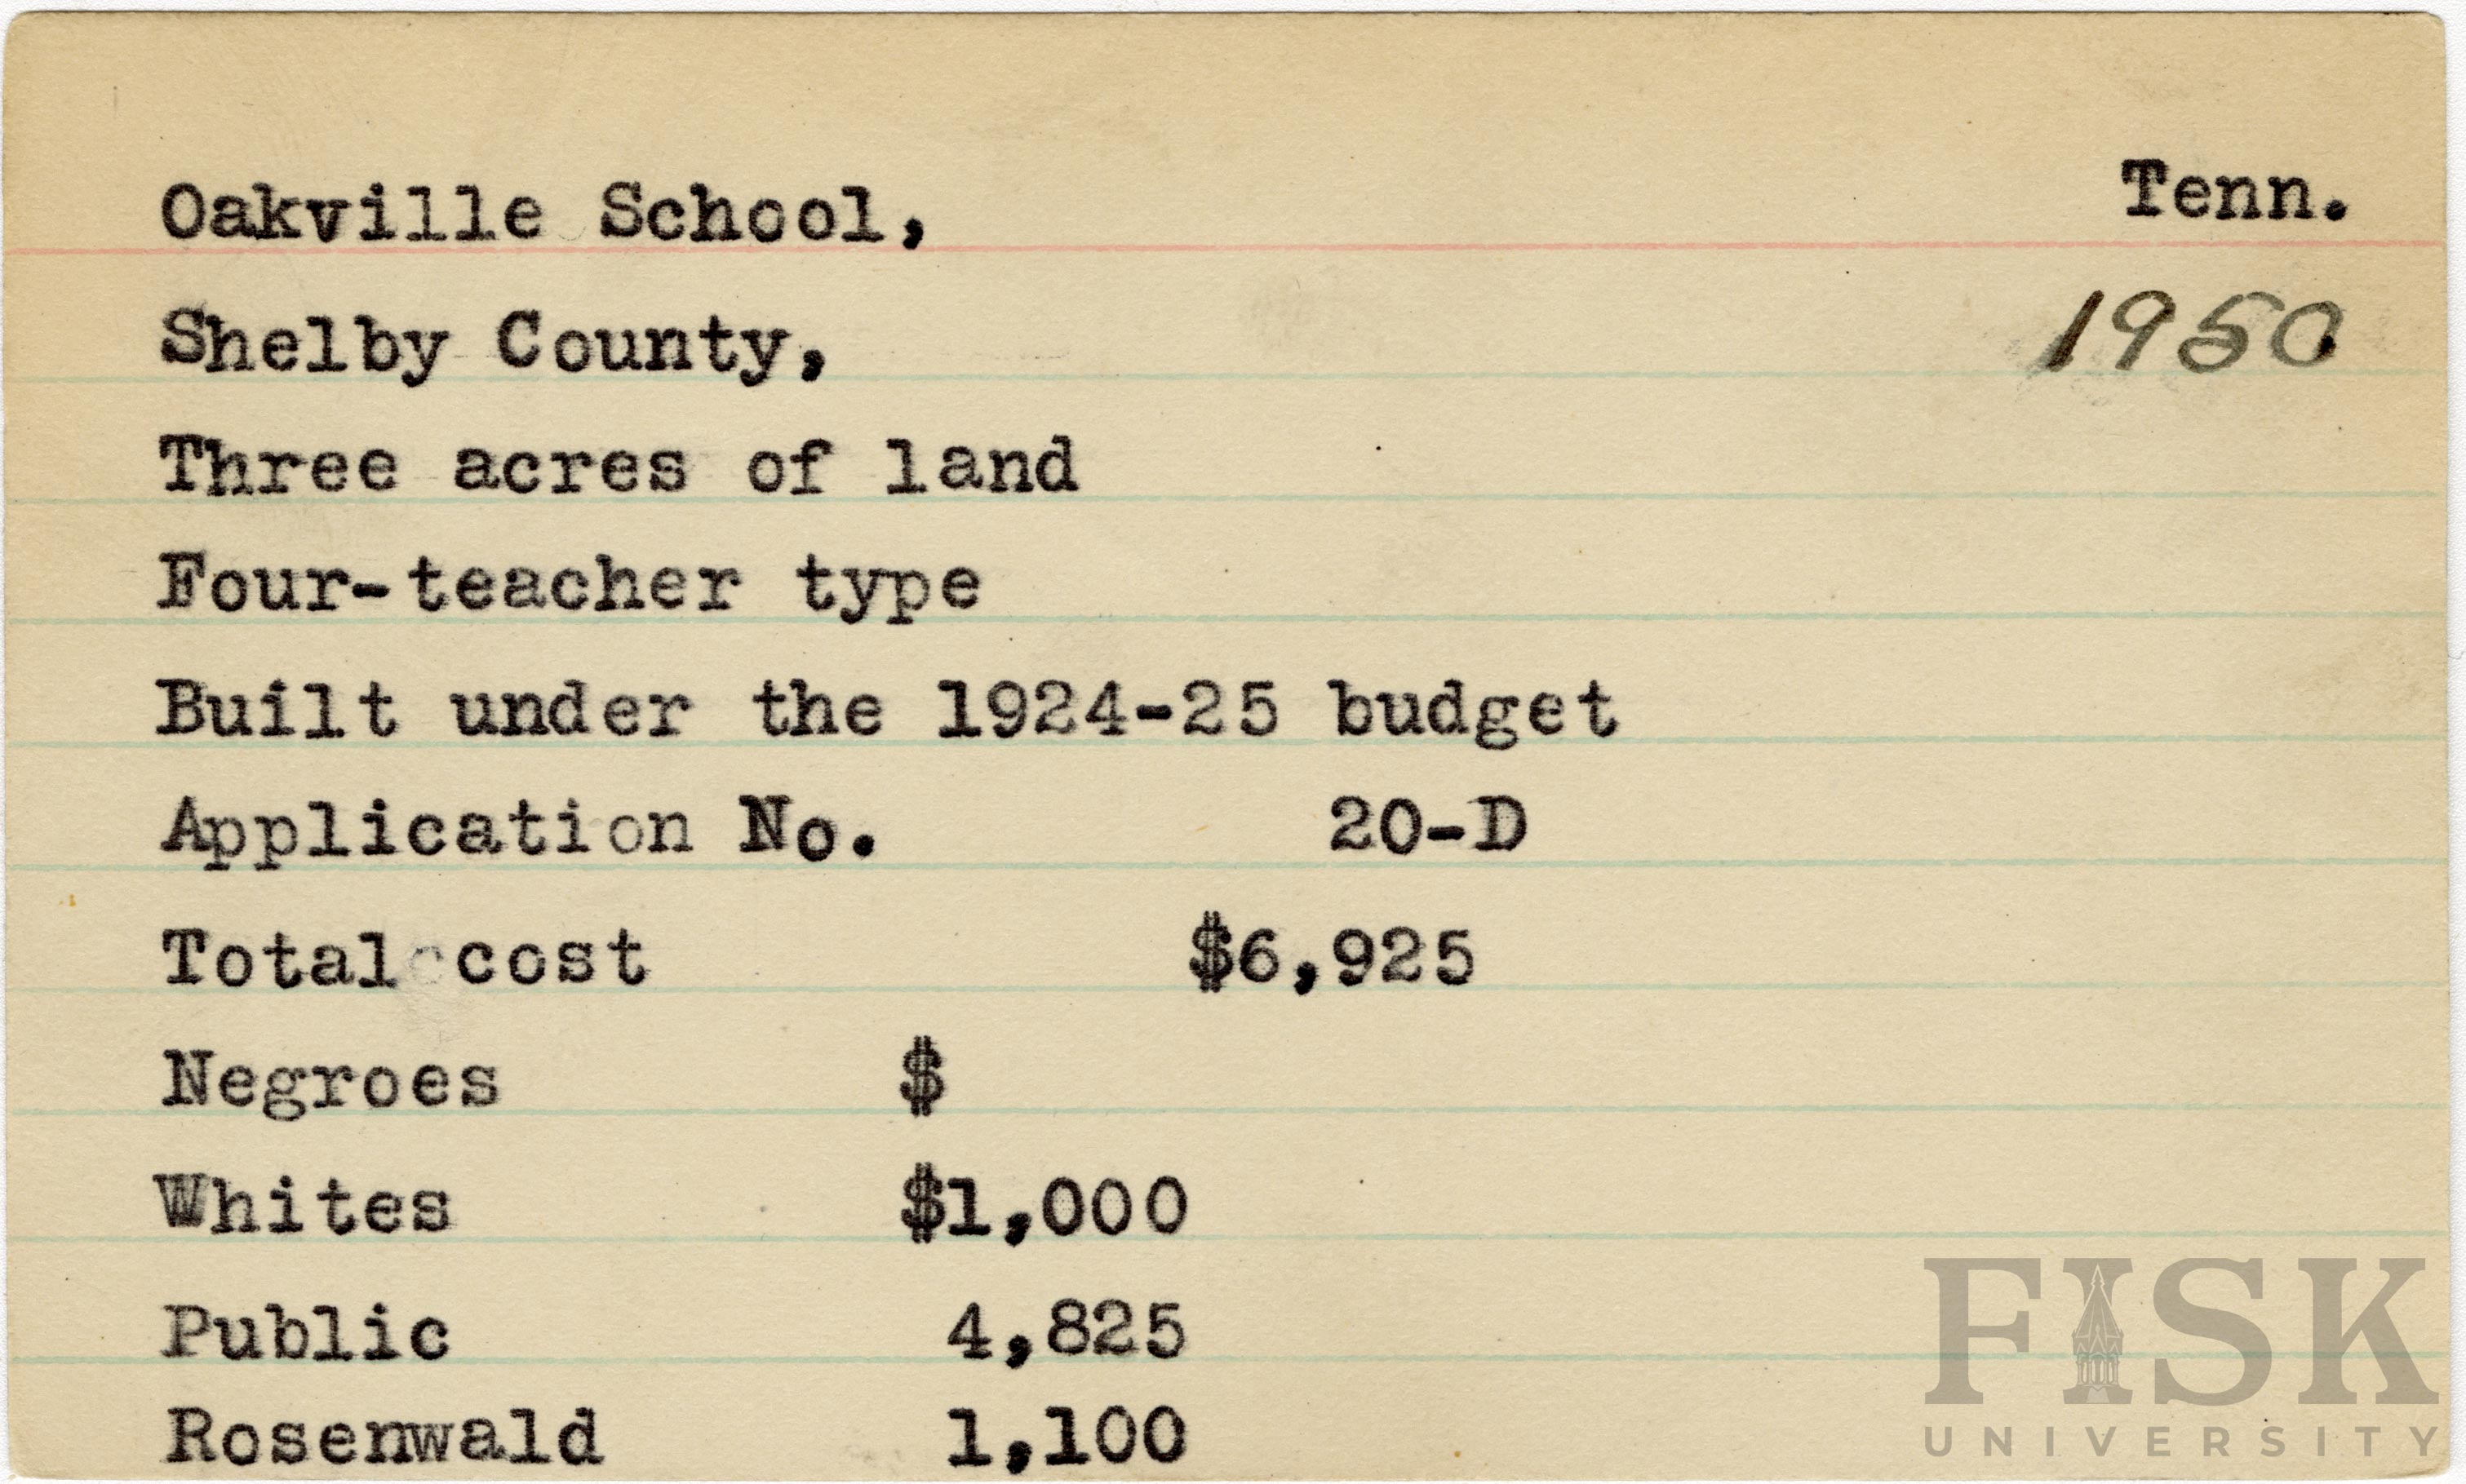 Oakville School, Tenn.
Shelby County, 1950
Three acres of land
Four-teacher type
Built under the 1924-25 budget
Application No. 20-D
Total cost $6,925
Negroes $
Whites $1,000
Public 4,825
Rosenwald 1,100
FISK
UNIVERSITY